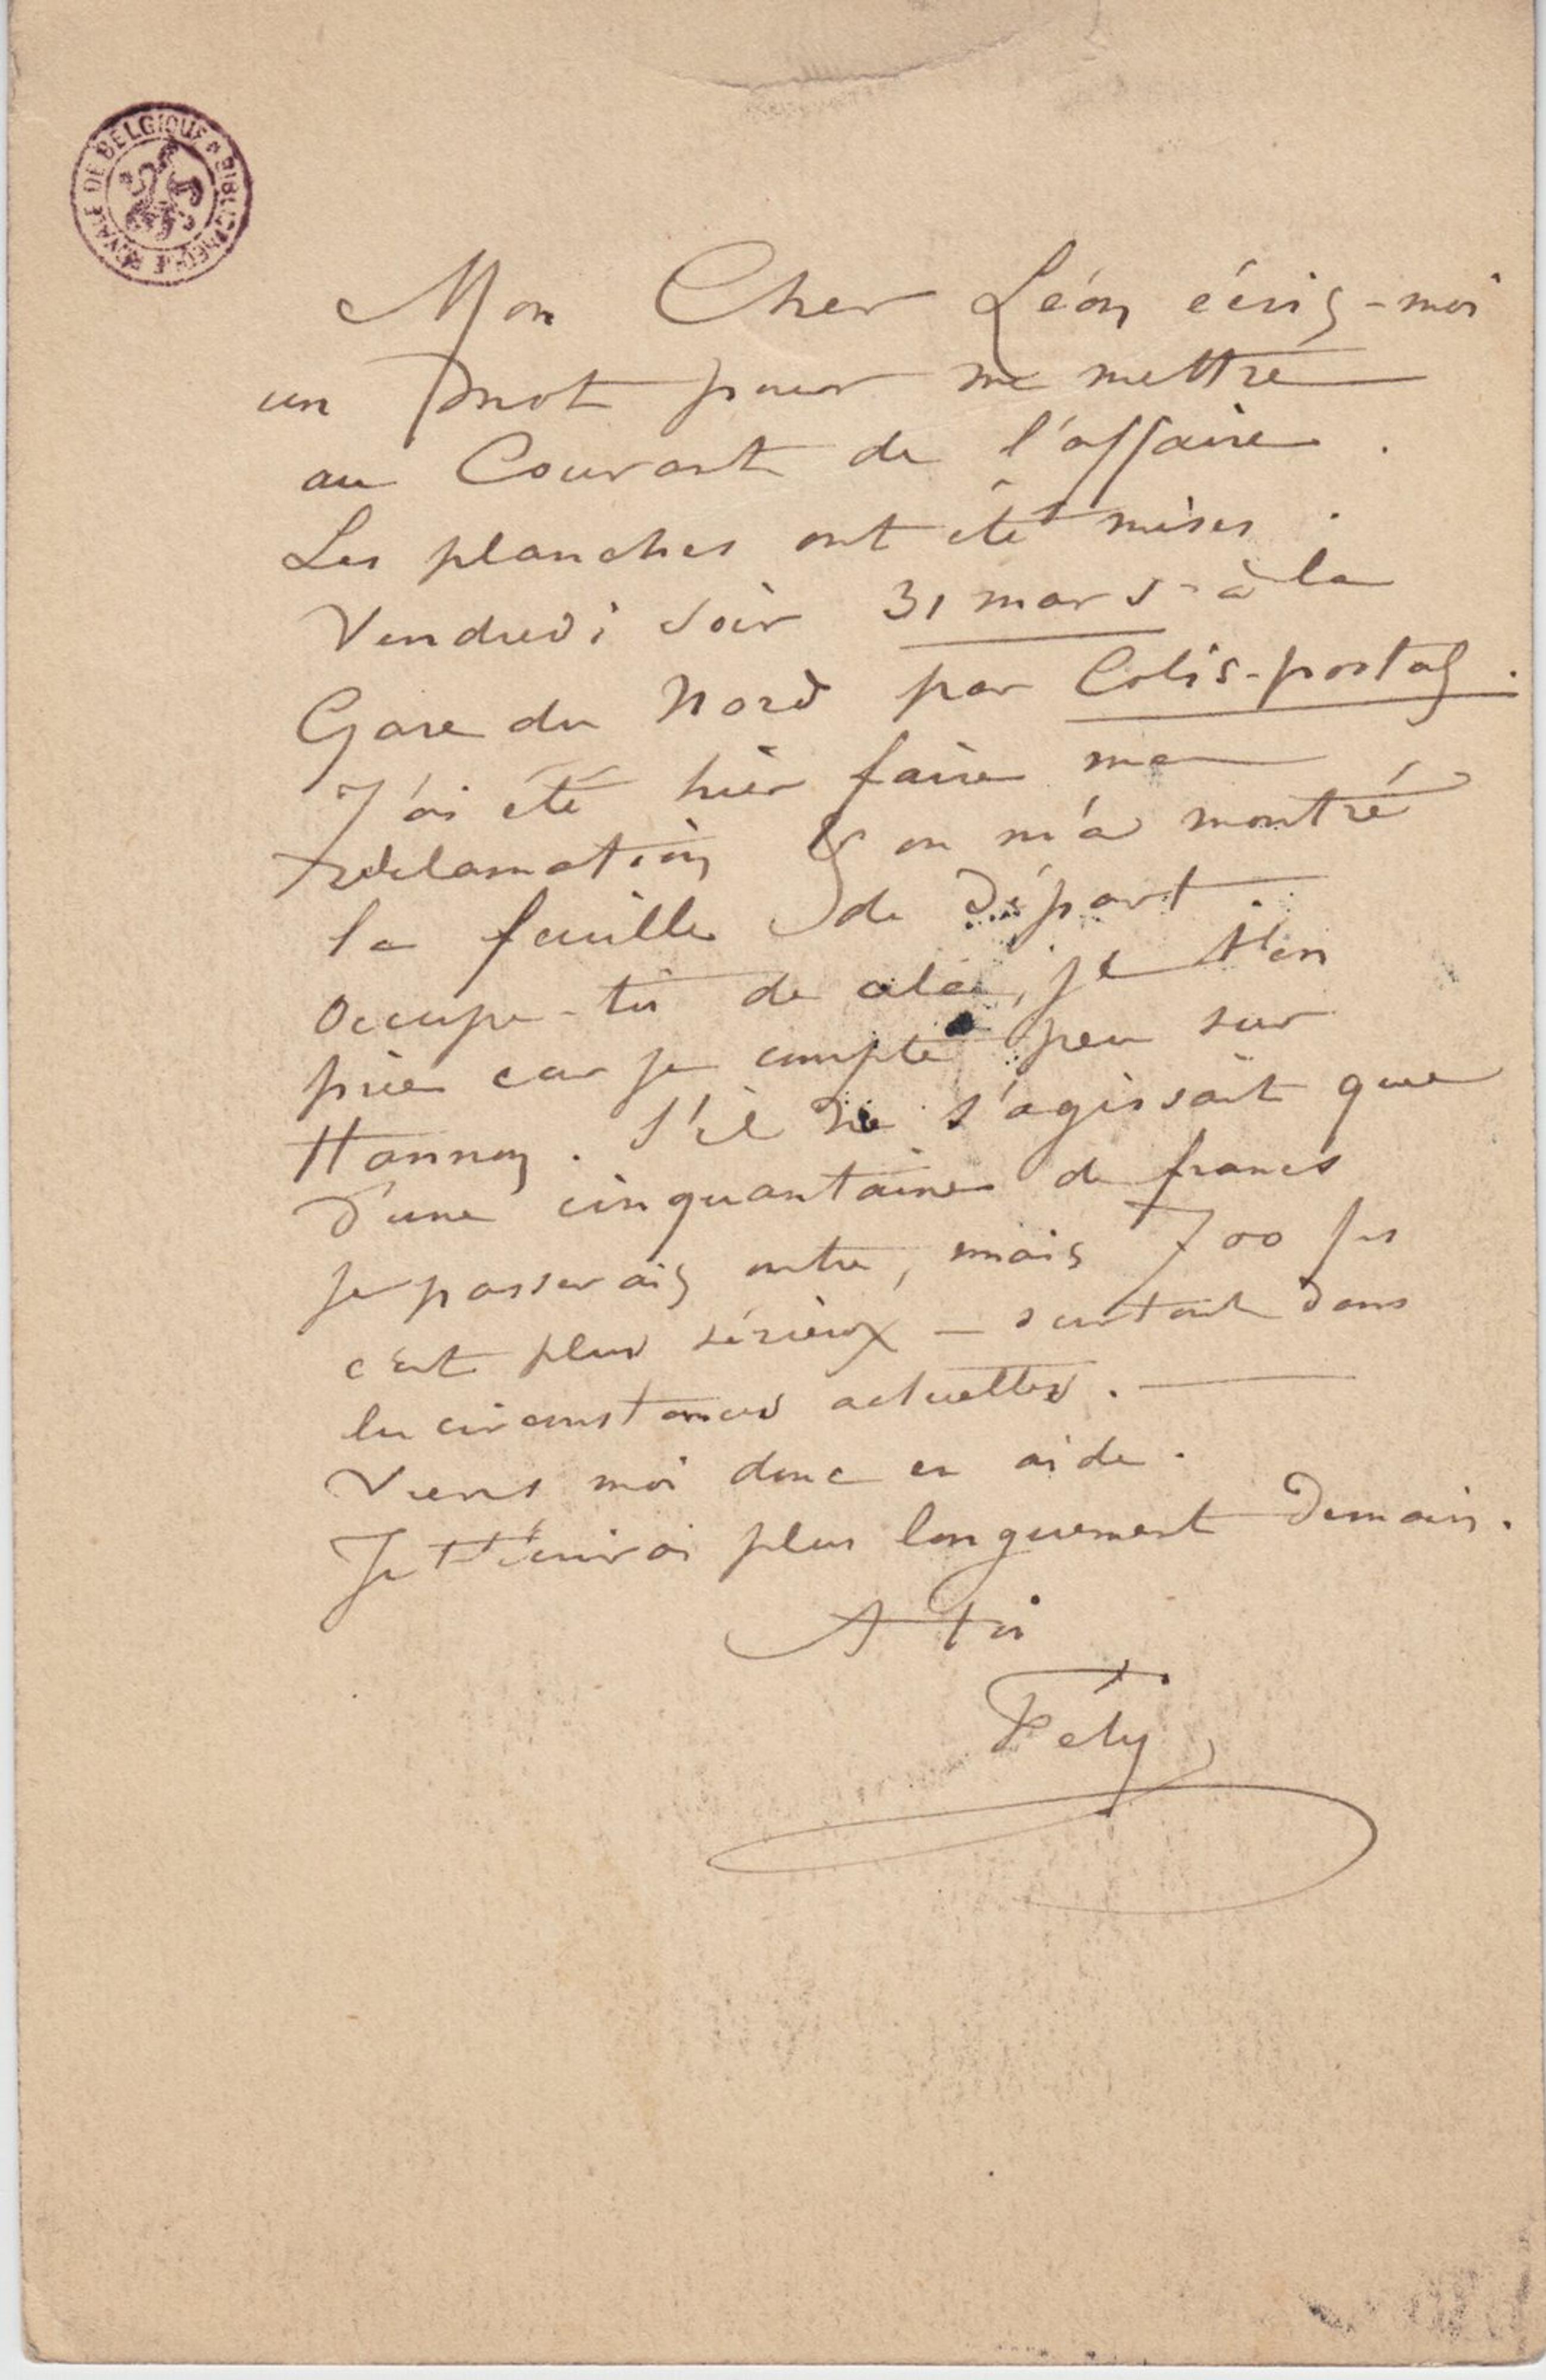 BIBLIOTHÈQUE ROYALE DE BELGIQUE
Mon Cher Léon écris-moi
un mot pour me mettre
au Courant de l'affaire.
Les planches ont été mises
Vendredi soir 31 mars à la
Gare du Nord par Colis-postal.
J'ai été hier faire ma
réclamation & on m'a montré
la feuille de départ.
Occupe-toi de cela, je t'en
prie car je compte peu sur
Hannon. S'il ne s'agissait que
d'une cinquantaine de francs
je passerais outre, mais 700 frs
c'est plus sérieux – surtout dans
les circonstances actuelles. —
Viens moi donc en aide.
Je t'écrirai plus longuement demain.
A toi
Fély